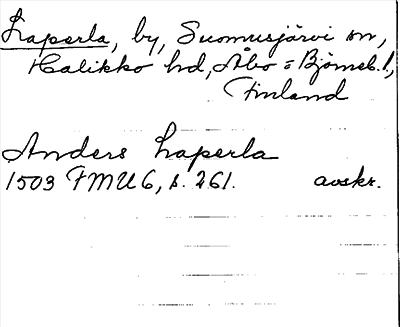 Laperla, by, Suomusjärvi sn,
Halikko hd, Åbo = Björneb. l.,
Finland
Anders Laperla
1503 FMU 6, s. 261. avskr.